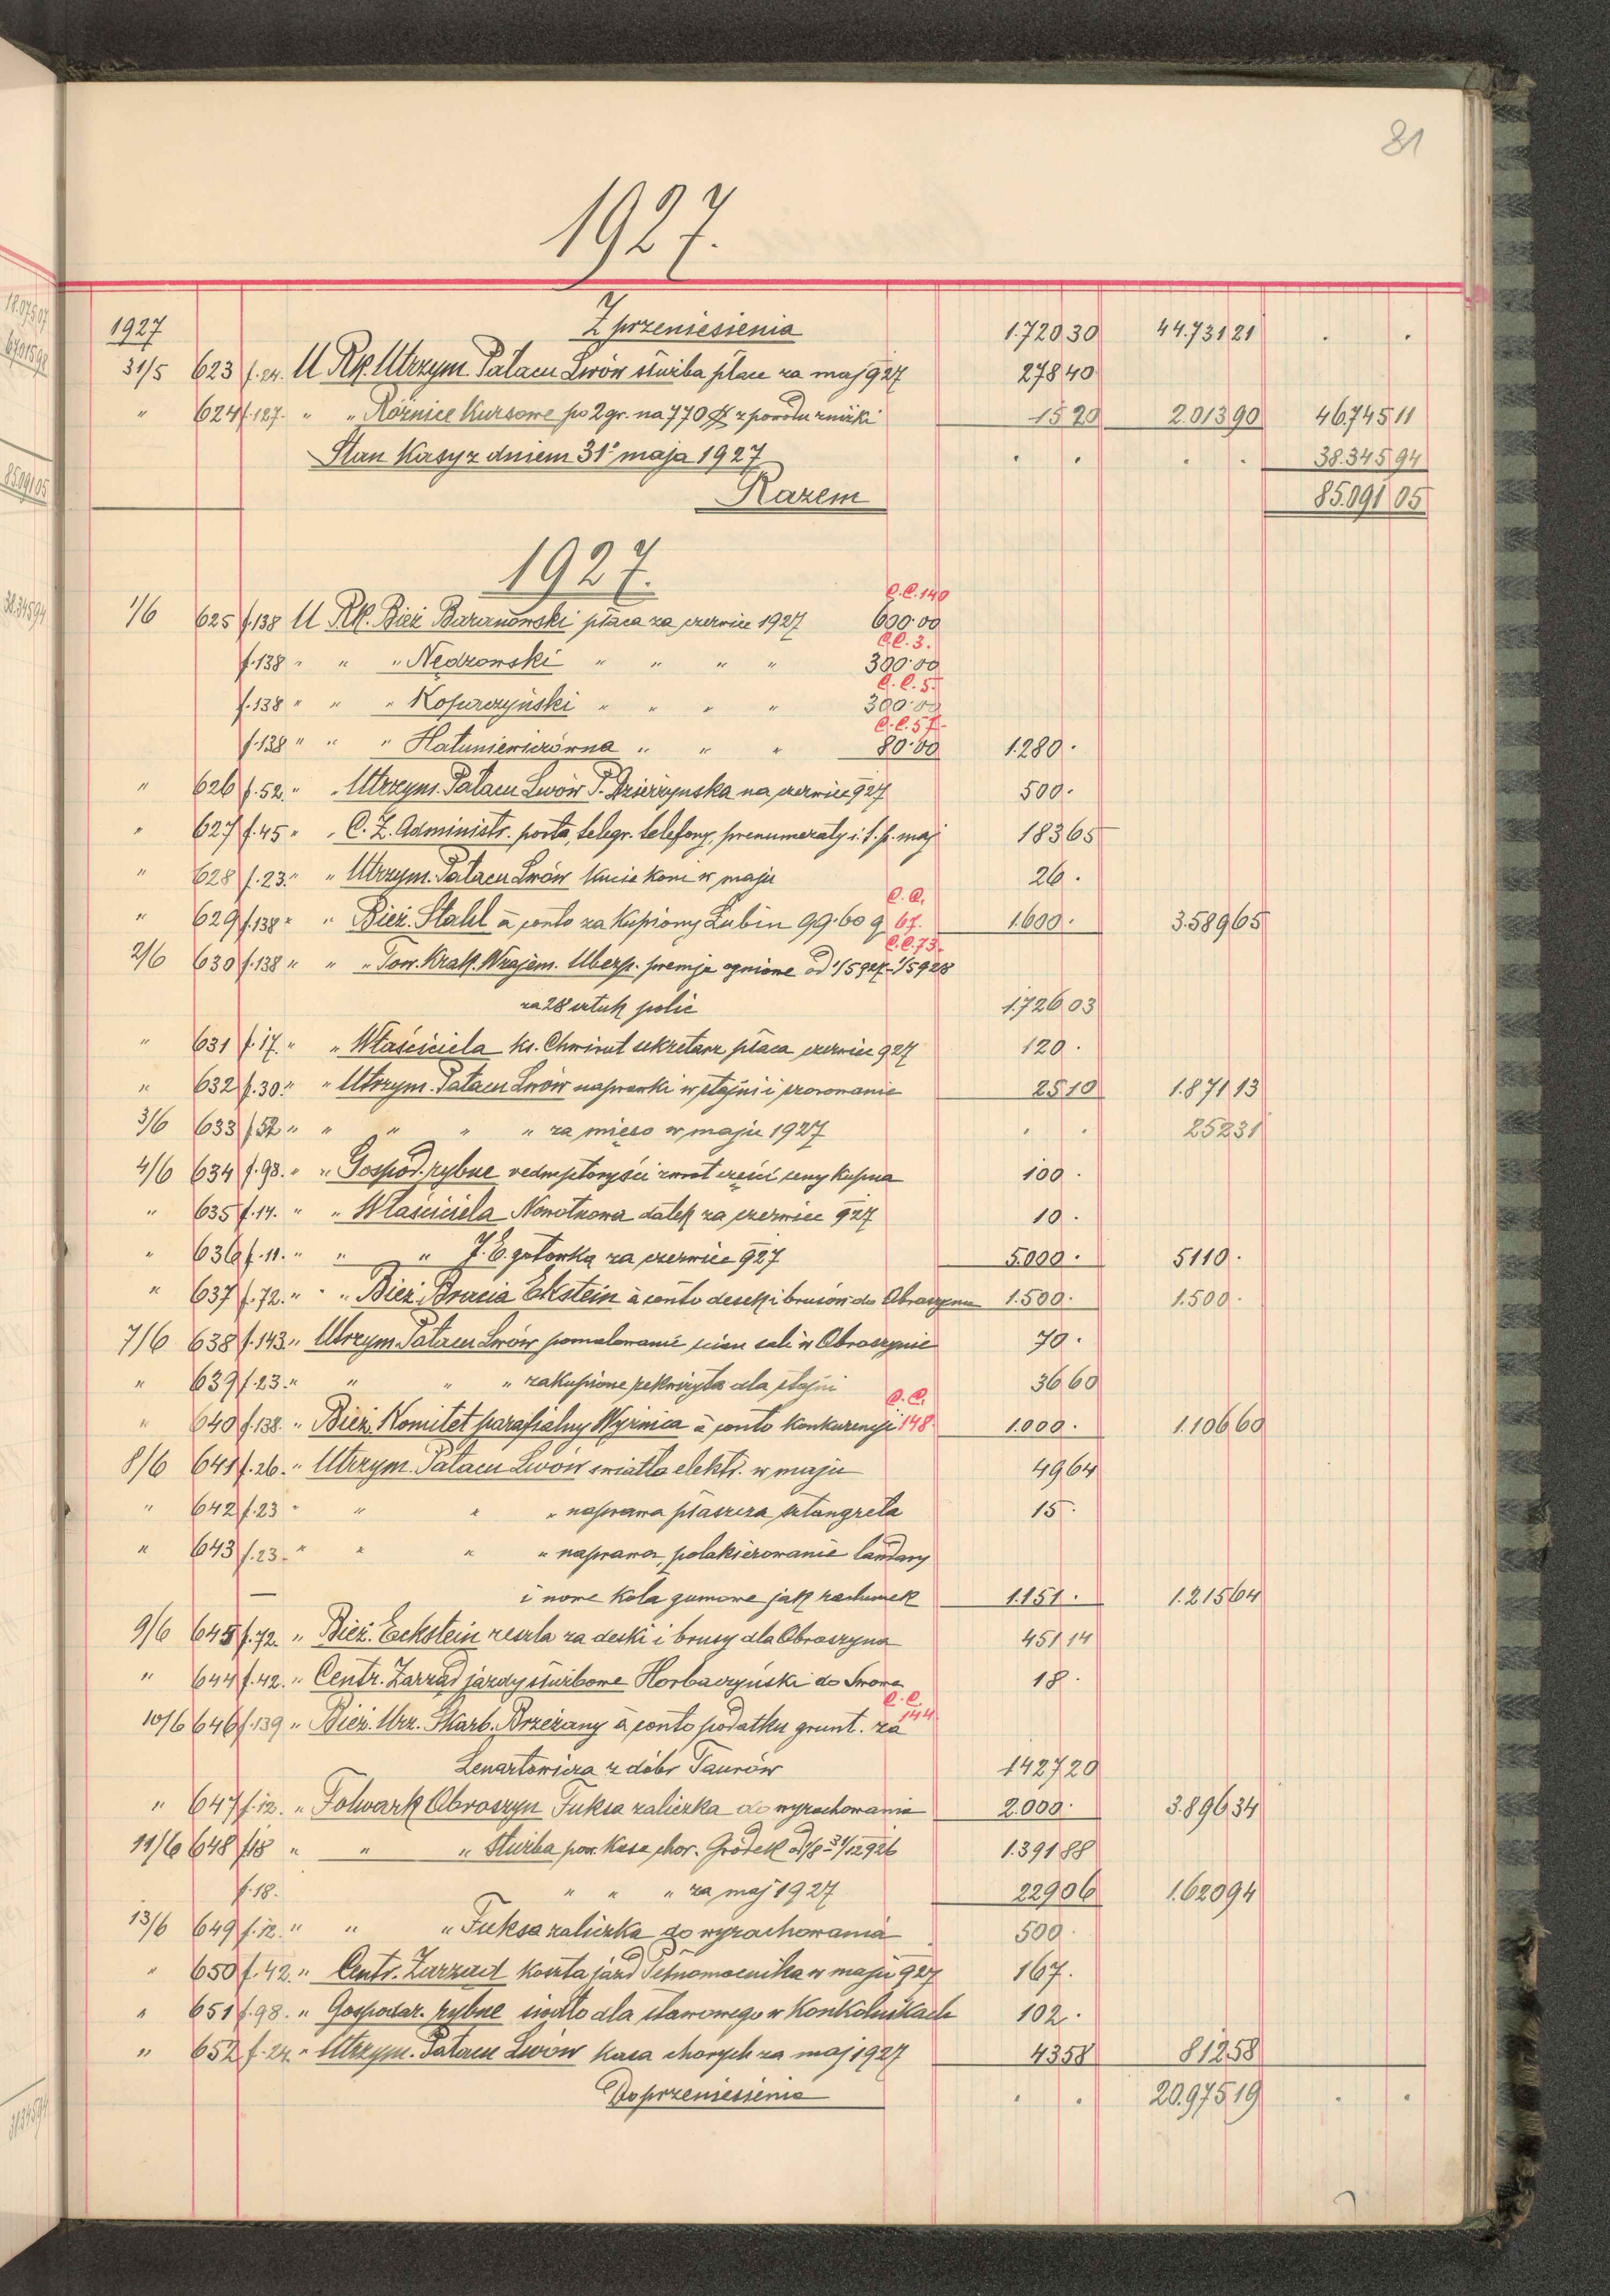 81
1927.
1927 Z przeniesienia 1.720 30 44.731 21 . .
31/5 623 f.24. U Rk. Utrzym. Pałacu Lwów służba płace za maj 927 278 40
" 624 f.127. " " Różnice Kursowe po 2 gr. na 770 $ z powodu zniżki 15 20 2.013 90 46.745 11
Stan Kasy z dniem 31. maja 1927 . . . . 38.345 94
Razem 85.091 05
1927.
C.C. 140
1/6 625 f.138 U Rk. Bież Baranowski płaca za czerwiec 1927 600·00
C.C. 3.
f.138 " " " Nędzowski " " " " 300·00
C.C. 5.
f.138 " " " Kopurczyński " " " " 300·00
C.C. 57.
f.138 " " " Hatuniewiczówna " " " 80·00 1.280 .
" 626 f.52. " " Utrzym. Pałacu Lwów P. Dzierżyńska na czerwiec 927 500 .
" 627 f.45 " " C. Z. Administr. porta, telegr. telefony, prenumeraty i. t. p. maj 183 65
" 628 f.23. " " Utrzym. Pałacu Lwów kucie koni w maju 26 .
C.C.
" 629 f.138 " " Bież. Stahl à conto za kupiony Łubin 99·60 q 67. 1.600 . 3.589 65
C.C. 73.
2/6 630 f.138 " " " Tow. Krak. Wzajem. Ubezp. premje ogniowe od 1/5 927 - 1/5 928
za 28 sztuk polic 1.726 03
" 631 f.17. " " Właściciela ks. Chwirut sekretarz płaca czerwiec 927 120 .
" 632 f.30. " " Utrzym. Pałacu Lwów naprawki w stajni i 25 10 1.871 13
3/6 633 f.52 " " " " " za mięso w maju 1927 . . 252 31
4/6 634 f.98. " " Gospod. rybne zwrot części ceny kupna 100 .
" 635 f.14. " " Właściciela Nowotnowa datek za czerwiec 927 10 .
" 636 f.11. " " " J. E. gotówka za czerwiec 927 5.000 . 5110 .
" 637 f.72. " " " Bież. Bracia Ekstein à conto desek i brusów do Obroszyna 1.500 . 1.500 .
7/6 638 f.143. " Utrzym. Pałacu Lwów pomalowanie ścian sali w Obroszynie 70 .
" 639 f.23. " " " " zakupione rekwizyta dla stajni 36 60
C.C.
" 640 f.138. " Bież. Komitet parafialny Wyżnica à conto konkurencji 148. 1.000 . 1.106 60
8/6 641 f.26. " Utrzym. Pałacu Lwów światło elektr. w maju 49 64
" 642 f.23 " " " " naprawa płaszcza sztangreta 15 .
" 643 f.23. " " " " naprawa, polakierowanie landary
i nowe koła gumowe jak rachunek 1.151 . 1.215 64
9/6 645 f.72. " Bież. Eckstein reszta za deski i brusy dla Obroszyna 451 14
" 644 f.42. " Centr. Zarząd jazdy służbowe Horbaczyński do Lwowa 18 .
C.C.
10/6 646 f.139 " Bież. Urz. Skarb. Brzeżany à conto podatku grunt. za 144.
Lenartowicza z dóbr Taurów 1427 20
" 647 f.12. " Folwark Obroszyn Fuksa zaliczka do wyrachowania 2.000 . 3.896 34
11/6 648 f.18 " " " Służba pow. Kasa chor. Gródek od 1/8 - 31/12 926 1.391 88
f.18. " " " za maj 1927 229 06 1.620 94
13/6 649 f.12. " " " Fuksa zaliczka do wyrachowania 500 .
" 650 f.42. " Centr. Zarząd koszta jazd Pełnomocnika w maju 927 167 .
" 651 f.98. " Gospodar. rybne siodło dla stawowego w Konkolnikach 102 .
" 652 f.24. " Utrzym. Pałacu Lwów kasa chorych za maj 1927 43 58 812 58
Do przeniesienia . . 20.975 19 . .